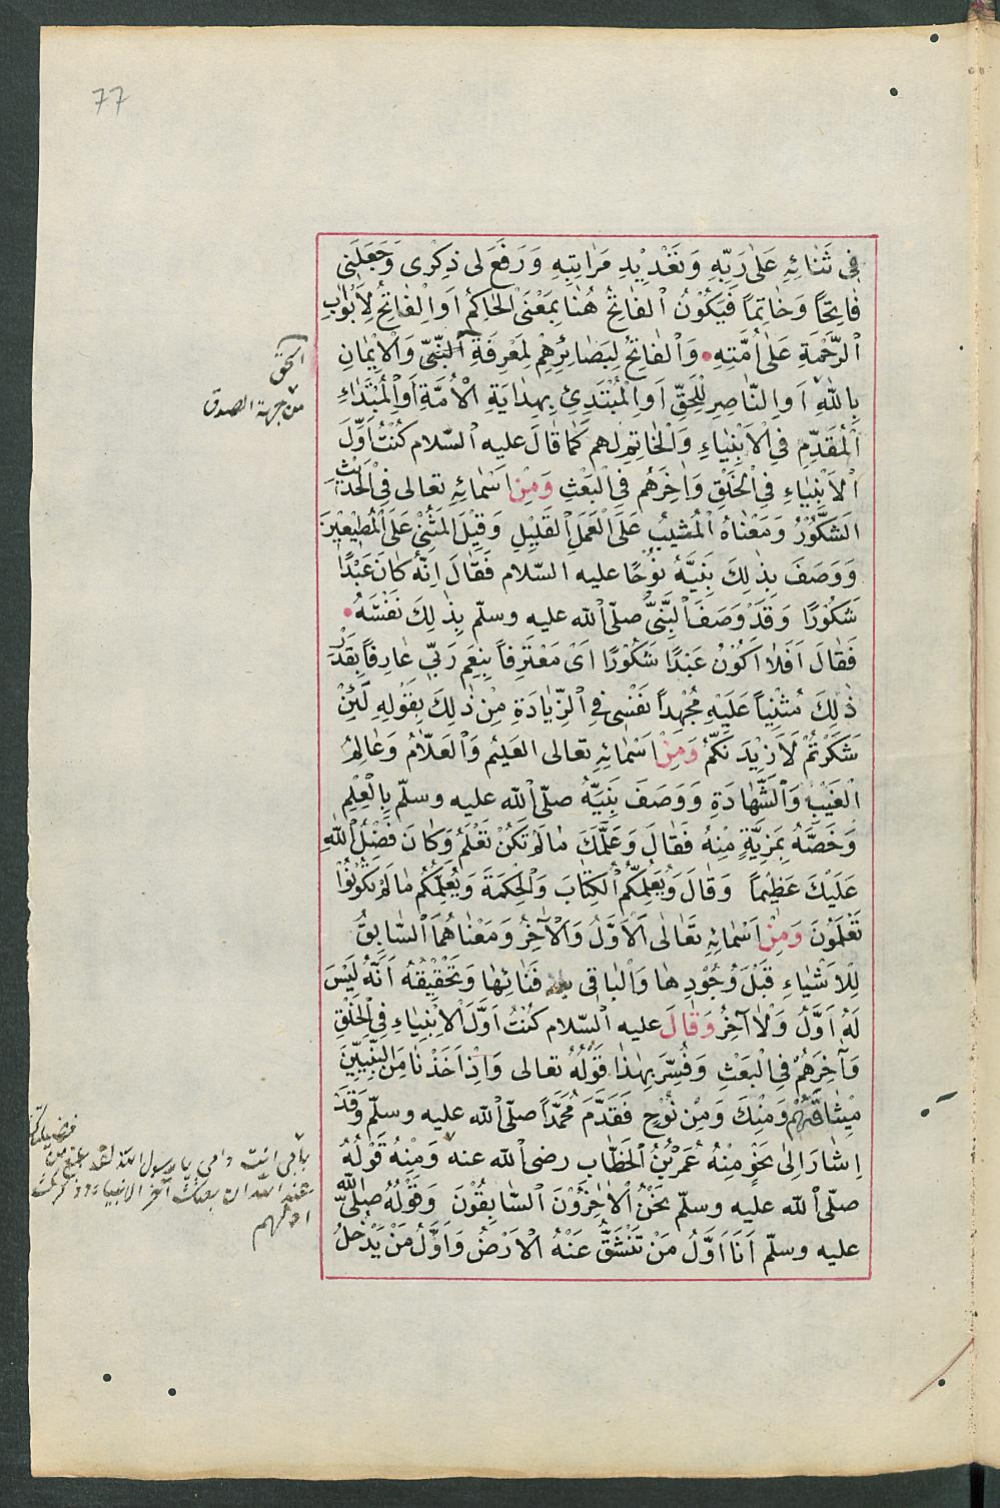 77
فِى ثَنَائِهِ عَلىٰ رَبِّهِ وَتَعْدِيدِ مَرَاتِبِهِ وَرَفَعَ لى ذِكْرِى وَجَعَلَنِى
فَاتِحًا وَخَاتِمًا فَيَكُوْنُ الْفَاتِحُ هُنَا بِمَعْنَى الْحَاكِمُ اَوِ الْفَاتِحُ لِاَبْوَابِ
الرَّحْمَةِ عَلىٰ اُمَّتِهِ وَالْفَاتِحُ لِبَصَائِرِهِمْ لِمَعْرِفَةِ النَّبِىِّ وَالْاِيْمَانِ
بِاللّٰهِ اَوِ النَّاصِرِ لِلْحَقِّ اَوِ الْمُبْتَدِئِ بِهِدَايَةِ الْاُمَّةِ اَوِ الْمُبْتَدَاءِ
الْمُقَدِّمِ فِى الْاَنْبِيَاءِ وَالْخَاتِمِ لهم كَمَا قَالَ عليه السّلام كُنْتُ اَوَّلَ
الْاَنْبِيَاءِ فِى الْخَلْقِ وَاٰخِرَهُم فِى الْبَعْثِ وَمِنْ اَسْمَائِهِ تعالى فِى الْحَدِيْثِ
الشَّكُوْرُ وَمَعْنَاهُ الْمُثِيبُ عَلَى الْعَمَلِ الْقَلِيْلِ وَقِيْلَ المُثْنِى عَلَى الْمُطِيْعِيْنَ
وَوَصَفَ بِذٰلِكَ نَبِيَّهُ نُوْحًا عليه السّلام فَقَالَ اِنَّهُ كَانَ عَبْدًا
شَكُوْرًا وَقَدْ وَصَفَ النَّبِىُّ صلّى اللّه عليه وسلّم بِذٰلِكَ نَفْسَهُ
فَقَالَ اَفَلَا اَكُوْنُ عَبْدًا شَكُوْرًا اَىْ مُعْتَرِفًا بِنِعَمِ رَبِّى عَارِفًا بِقَدْرِ
ذٰلِكَ مُثْنِيًا عَلَيْهِ مُجْهِدًا نَفْسِى فِى الزِّيَادَةِ مِنْ ذٰلِكَ بِقَوْلِهِ لَئِنْ
شَكَرْتُمْ لَاَزِيْدَنَّكُمْ وَمِنْ اَسْمَائِهِ تعالى العَلِيْمُ وَالْعَلَّامُ وَعَالِمُ
الْغَيْبِ وَالشَّهَادَةِ وَوَصَفَ نَبِيَّهُ صلّى اللّه عليه وسلّم بِالْعِلْمِ
وَخَصَّهُ بِمَزِيَّةٍ مِنْهُ فَقَالَ وَعَلَّمَكَ مَا لَمْ تَكُنْ تَعْلَمُ وَكَانَ فَضْلُ اللّٰهِ
عَلَيْكَ عَظِيْمًا وَقَالَ وَيُعَلِّمُكُمُ الْكِتَابَ وَالْحِكْمَةَ وَيُعَلِّمُكُم مَا لَمْ تَكُوْنُوْا
تَعْلَمُوْنَ وَمِنْ اَسْمَائِهِ تَعَالىٰ الْاَوَّلُ وَالْاٰخِرُ وَمَعْنَاهُمَا السَّابِقُ
لِلْاَشْيَاءِ قَبْلَ وُجُوْدِهَا وَالْبَاقِى بعد فَنَائِهَا وَتَحْقِيْقُهُ اَنَّهُ لَيْسَ
لَهُ اَوَّلُ وَلَا آخِرُ وَقَالَ عليه السّلام كُنْتُ اَوَّلَ الْاَنْبِيَاءِ فِى الْخَلْقِ
وَآخِرَهُمْ فِى الْبَعْثِ وَفُسِّرَ بِهٰذَا قَوْلُهُ تعالى وَاِذْ اَخَذْنَا مِنَ النَّبِيِّيْنَ
مِيْثَاقَهُمْ وَمِنْكَ وَمِنْ نُوْحٍ فَقَدَّمَ مُحَمَّدًا صلّى اللّه عليه وسلّم وَقَدْ
اِشَارَ اِلىٰ نَحْوٍ مِنْهُ عُمَرُ بْنُ الْخَطَّابِ رضى اللّه عنه وَمِنْهُ قَوْلُهُ
صلّى اللّه عليه وسلّم نَحْنُ الْاٰخِرُوْنَ السَّابِقُوْنَ وَقَوْلُهُ صلى اللّه
عليه وسلّم اَنَا اَوَّلُ مَنْ تَنْشَقُّ عَنْهُ الْاَرْضُ وَاَوَّلُ مَنْ يَدْخِلُ
الحق
من جهة الصدق
بأبى انت وامى يا رسول الله لقد بلغ من فضيلتك
عند الله ان بعثك آخر الانبياء وذكرك
اولهم